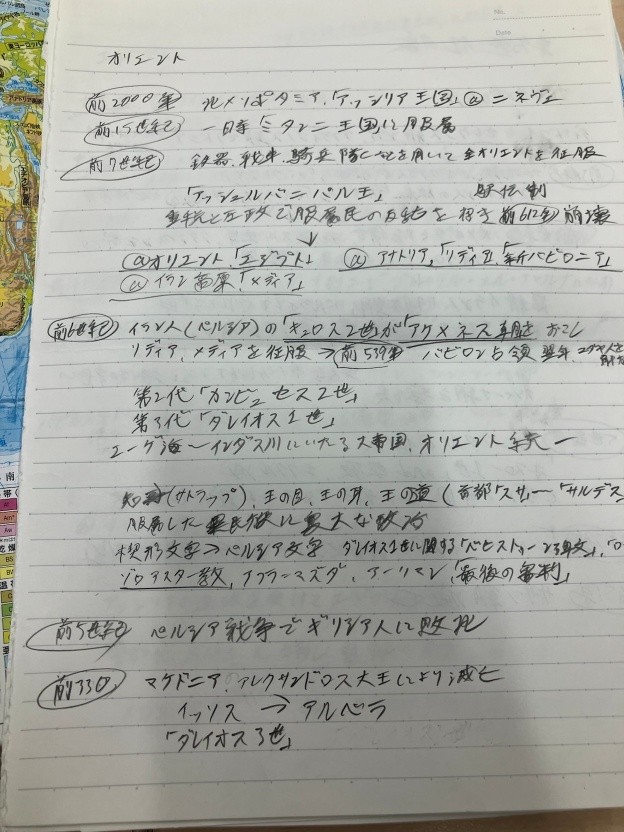 オリエント
前2000年 北メソポタミア、「アッシリア王国」@ニネヴェ
前15世紀 一時ミタンニ王国に服属
前7世紀 鉄器、戦車、騎兵隊などを用いて全オリエントを征服
「アッシュルバニパル王」 駅伝制
重税と圧政で服属民の反抗を招き 前612年 崩壊
↓
@オリエント「エジプト」 @アナトリア、「リディア」、「新バビロニア」
@イラン高原「メディア」
前6世紀 イラン人(ペルシア)の「キュロス2世が「アケメネス朝 おこし
リディア、メディアを征服 → 前539年 バビロン占領 翌年 ユダヤ人を
第2代「カンビュセス2世」
第3代「ダレイオス1世」
エーゲ海〜インダス川にいたる大帝国、オリエント統一
知事(サトラップ)、王の目、王の耳、王の道(首都「スサ」〜「サルデス
服属した異民族に寛大な政治
楔形文字→ペルシア文字 ダレイオス1世に関する「ベヒストゥーン碑文」、
ゾロアスター教、アフラ=マズダ、アーリマン、「最後の審判」
前5世紀 ペルシア戦争でギリシア人に敗北
前330 マケドニア、アレクサンドロス大王により滅亡
イッソス → アルベラ
「ダレイオス3世」
南
乾燥
BS
温